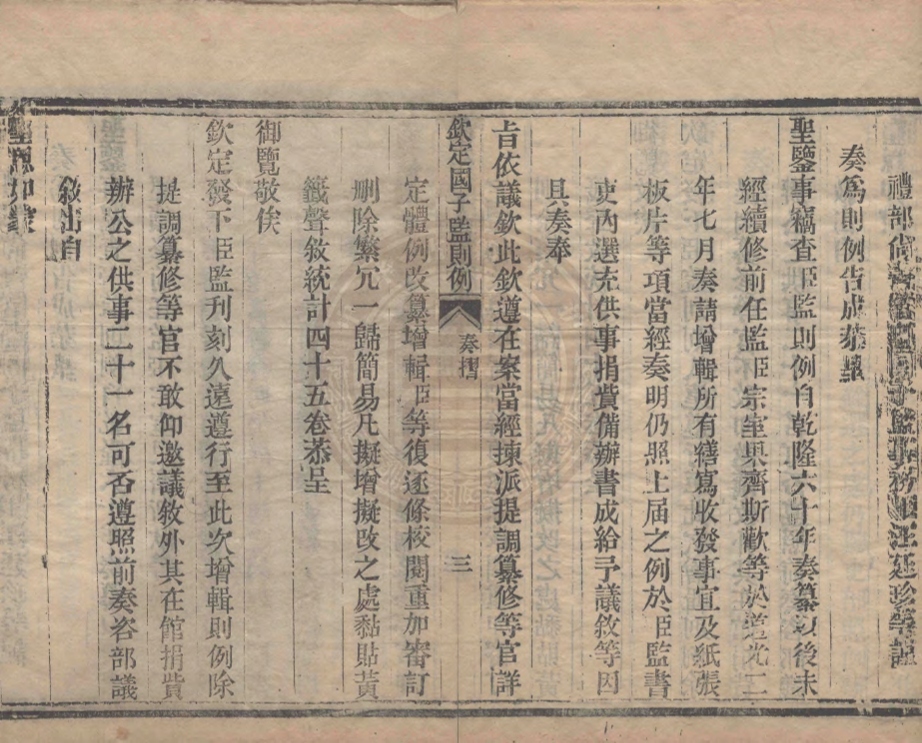 禮部尚書管理國子監事務臣汪廷珍等謹
奏為則例告成恭懇
聖鑒事竊查臣監則例自乾隆六十年奏纂以後未
經續修前任監臣宗室果齊斯歡等於道光二
年七月奏請增輯所有繕寫收發事宜及紙張
板片等項當經奏明仍照上届之例於臣監書
吏內選充供事捐貲備辦書成給予議敘等因
具奏奉
旨依議欽此欽遵在案當經揀派提調纂修等官詳
欽定國子監則例 奏摺 三
定體例改纂增輯臣等復逐條校閱重加審訂
刪除繁冗一歸簡易凡擬增擬改之處黏貼黃
籤聲敘統計四十五卷恭呈
御覽敬俟
欽定發下臣監刊刻久遠遵行至此次增輯則例除
提調纂修等官不敢仰邀議敘外其在館捐貲
辦公之供事二十一名可否遵照前奏咨部議
敘出自
聖恩如蒙